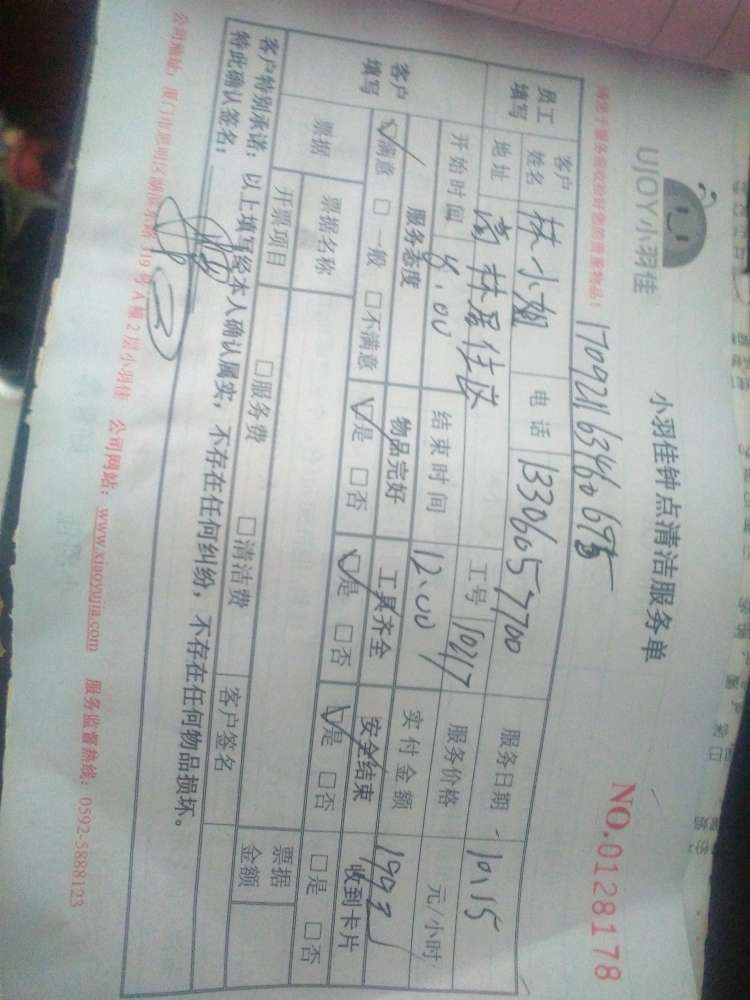 UJOY小羽佳
小羽佳钟点清洁服务单
NO.0128178
员工填写
客户姓名 林小姐 电话 服务日期 10.15
地址 高林居住区 工号 10217 服务价格 元/小时
开始时间 8:00 结束时间 12:00 实付金额
客户填写
服务态度 物品完好 工具齐全 安全结束 收到卡片
☑满意 □一般 □不满意 ☑是 □否 ☑是 □否 ☑是 □否 □是 □否
票据
票据名称 票据金额
开票项目 □服务费 □清洁费 客户签名
客户特别承诺:以上填写经本人确认属实,不存在任何纠纷,不存在任何物品损坏。
特此确认签名:
公司地址:厦门市思明区湖滨东路319号A幢2层小羽佳 公司网站:www.xiaoyujia.com 服务监督热线:0592-5888123